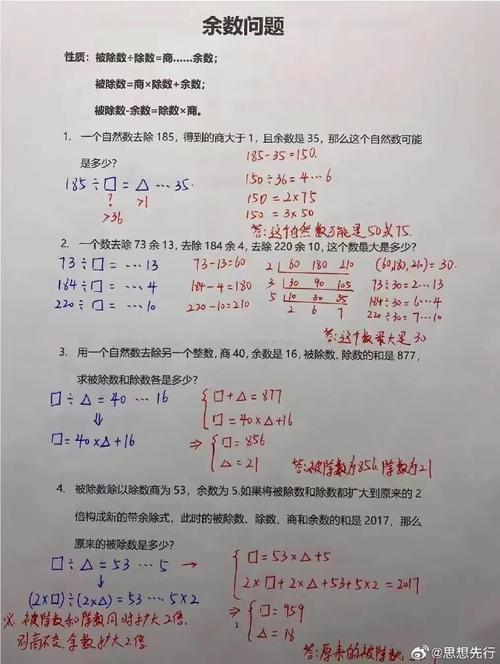 余数问题
性质: 被除数÷除数=商……余数;
被除数=商×除数+余数;
被除数-余数=除数×商。
1. 一个自然数去除 185，得到的商大于 1，且余数是 35，那么这个自然数可能
是多少？
185-35=150.
185÷□=△…35.
150÷36=4…6
?
>1
150=2×75
>36
150=3×50
答:这个自然数可能是50或75.
2. 一个数去除 73 余 13，去除 184 余 4，去除 220 余 10，这个数最大是多少？
73÷□=…13 73-13=60 2 60 180 210 (60,180,210)=30.
184÷□=…4 184-4=180 3 30 90 105 73÷30=2…13
220÷□=…10 220-10=210 5 10 30 35 184÷30=6…4
2 6 7 220÷30=7…10
答:这个数最大是30
3. 用一个自然数去除另一个整数，商 40，余数是 16，被除数、除数的和是 877，
求被除数和除数各是多少？
□÷△=40…16 □+△=877
⇓ □=40×△+16
□=40×△+16 ⇒ □=856
△=21 答:被除数为856,除数为21
4. 被除数除以除数商为 53，余数为 5.如果将被除数和除数都扩大到原来的 2
倍构成新的带余除式，此时的被除数、除数、商和余数的和是 2017，那么
原来的被除数是多少？
□÷△=53…5 → □=53×△+5
⇓ 2×□+2×△+53+5×2=2017
(2×□)÷(2×△)=53…5×2
⇒ □=959
△=18
※ 被除数和除数同时扩大2倍,
则商不变,余数扩大2倍.
答:原来的被除数
@思想先行